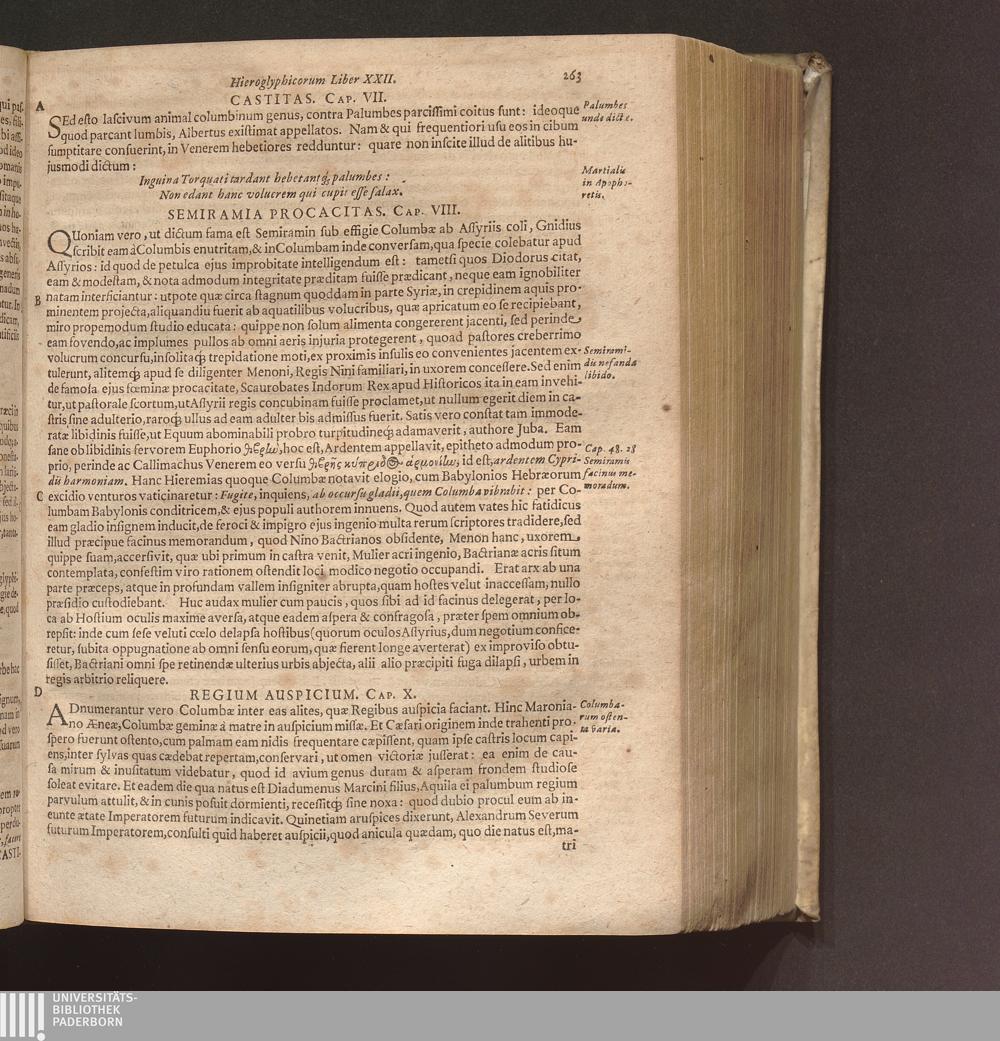 Hieroglyphicorum Liber XXII. 263
CASTITAS. CAP. VII.
A
SEd esto lascivum animal columbinum genus, contra Palumbes parcissimi coitus sunt: ideoque
quod parcant lumbis, Albertus existimat appellatos. Nam & qui frequentiori usu eos in cibum
sumptitare consuerint, in Venerem hebetiores redduntur: quare non inscite illud de alitibus hu-
jusmodi dictum:
Palumbes
unde dictæ.
Inguina Torquati tardant hebetantq́; palumbes:
Non edant hanc volucrem qui cupit esse salax.
Martialis
in Apopho-
retis.
SEMIRAMIA PROCACITAS. CAP. VIII.
QUoniam vero, ut dictum fama est Semiramin sub effigie Columbæ ab Assyriis coli, Gnidius
scribit eam à Columbis enutritam, & in Columbam inde conversam, qua specie colebatur apud
Assyrios: id quod de petulca ejus improbitate intelligendum est: tametsi quos Diodorus citat,
eam & modestam, & nota admodum integritate præditam fuisse prædicant, neque eam ignobiliter
B natam interficiantur: utpote quæ circa stagnum quoddam in parte Syriæ, in crepidinem aquis pro-
minentem projecta, aliquandiu fuerit ab aquatilibus volucribus, quæ apricatum eo se recipiebant,
miro propemodum studio educata: quippe non solum alimenta congererent jacenti, sed perinde
eam fovendo, ac implumes pullos ab omni aeris injuria protegerent, quoad pastores creberrimo
volucrum concursu, insolitaq́; trepidatione moti, ex proximis insulis eo convenientes jacentem ex-
tulerunt, alitemq́; apud se diligenter Menoni, Regis Nini familiari, in uxorem concessere. Sed enim
de famosa ejus fœminæ procacitate, Scaurobates Indorum Rex apud Historicos ita in eam invehi-
tur, ut pastorale scortum, ut Assyrii regis concubinam fuisse proclamet, ut nullum egerit diem in ca-
stris sine adulterio, raroq́; ullus ad eam adulter bis admissus fuerit. Satis vero constat tam immode-
ratæ libidinis fuisse, ut Equum abominabili probro turpitudineq́; adamaverit, authore Juba. Eam
sane ob libidinis fervorem Euphorio , hoc est, Ardentem appellavit, epitheto admodum pro-
prio, perinde ac Callimachus Venerem eo versu , id est, ardentem Cypri-
dis harmoniam. Hanc Hieremias quoque Columbæ notavit elogio, cum Babylonios Hebræorum
C excidio venturos vaticinaretur: Fugite, inquiens, ab occursu gladii, quem Columba vibrabit: per Co-
lumbam Babylonis conditricem, & ejus populi authorem innuens. Quod autem vates hic fatidicus
eam gladio insignem inducit, de feroci & impigro ejus ingenio multa rerum scriptores tradidere, sed
illud præcipue facinus memorandum, quod Nino Bactrianos obsidente, Menon hanc, uxorem
quippe suam, accersivit, quæ ubi primum in castra venit, Mulier acri ingenio, Bactrianæ acris situm
contemplata, confestim viro rationem ostendit loci modico negotio occupandi. Erat arx ab una
parte præceps, atque in profundam vallem insigniter abrupta, quam hostes velut inaccessam, nullo
præsidio custodiebant. Huc audax mulier cum paucis, quos sibi ad id facinus delegerat, per lo-
ca ab Hostium oculis maxime aversa, atque eadem aspera & confragosa, præter spem omnium ob-
repsit: inde cum sese veluti cœlo delapsa hostibus (quorum oculos Assyrius, dum negotium confice-
retur, subita oppugnatione ab omni sensu eorum, quæ fierent longe averterat) ex improviso obtu-
lisset, Bactriani omni spe retinendæ ulterius urbis abjecta, alii alio præcipiti fuga dilapsi, urbem in
regis arbitrio reliquere.
Semirami-
dis nefanda
libido.
Cap. 48. 28
Semiramis
facinus me-
moradum.
D
REGIUM AUSPICIUM. CAP. X.
ADnumerantur vero Columbæ inter eas alites, quæ Regibus auspicia faciant. Hinc Maronia-
no Æneæ, Columbæ geminæ à matre in auspicium missæ. Et Cæsari originem inde trahenti pro-
spero fuerunt ostento, cum palmam eam nidis frequentare cæpissent, quam ipse castris locum capi-
ens, inter sylvas quas cædebat repertam, conservari, ut omen victoriæ jusserat: ea enim de cau-
sa mirum & inusitatum videbatur, quod id avium genus duram & asperam frondem studiose
soleat evitare. Et eadem die qua natus est Diadumenus Marcini filius, Aquila ei palumbum regium
parvulum attulit, & in cunis posuit dormienti, recessitq́; sine noxa: quod dubio procul eum ab in-
eunte ætate Imperatorem futurum indicavit. Quinetiam aruspices dixerunt, Alexandrum Severum
futurum Imperatorem, consulti quid haberet auspicii, quod anicula quædam, quo die natus est, ma-
tri
Columba-
rum osten-
ta varia.
UNIVERSITÄTS-
BIBLIOTHEK
PADERBORN